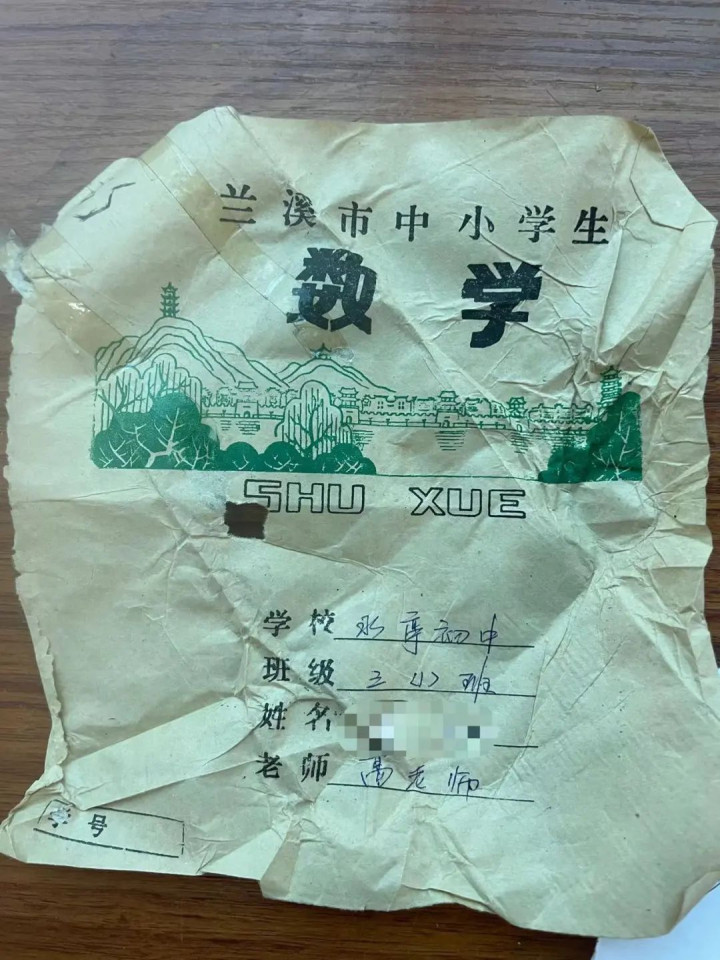 兰溪市中小学生
数学
SHU XUE
学校 永章初中
班级 三(1)班
姓名
老师 老师
学号